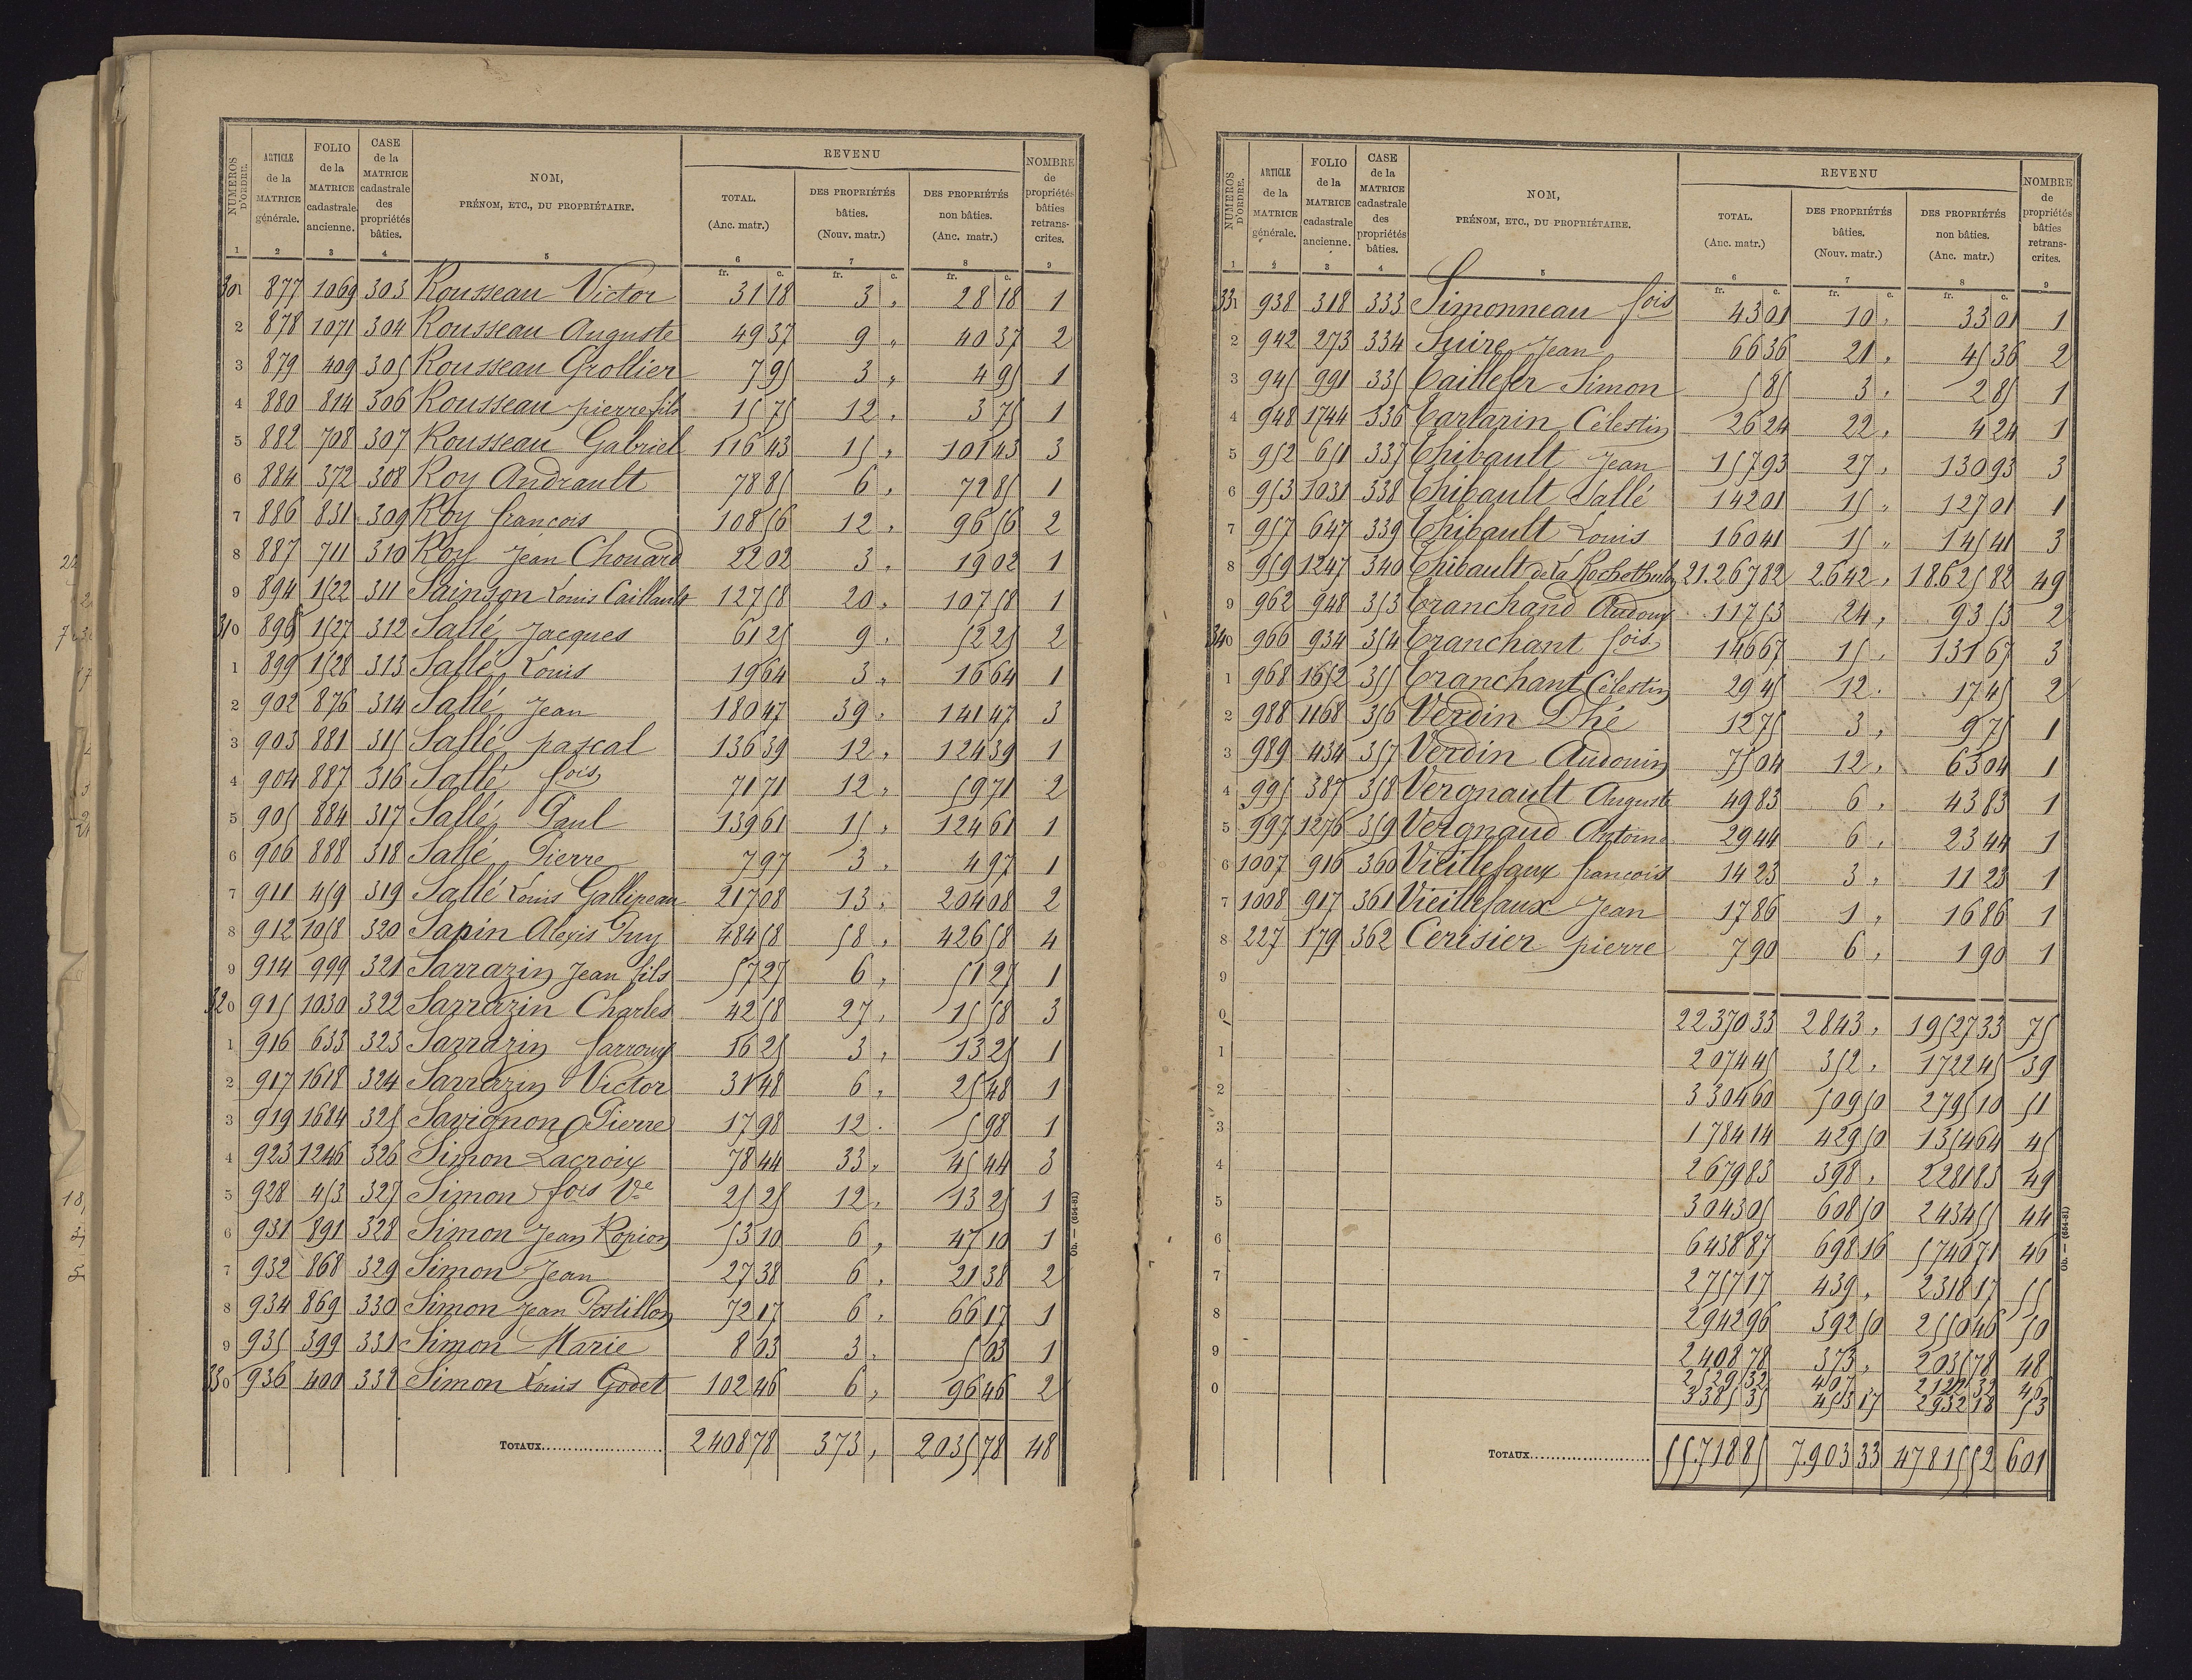 NUMÉROS D'ORDRE.
ARTICLE de la MATRICE générale.
FOLIO de la MATRICE cadastrale ancienne.
CASE de la MATRICE cadastrale des propriétés bâties.
NOM, PRÉNOM, ETC., DU PROPRIÉTAIRE.
REVENU
TOTAL. (Anc. matr.)
DES PROPRIÉTÉS bâties. (Nouv. matr.)
DES PROPRIÉTÉS non bâties. (Anc. matr.)
NOMBRE de propriétés bâties retranscrites.
1 2 3 4 5 6 7 8 9
fr. c. fr. c. fr. c.
301 877 1069 303 Rousseau Victor 31 18 3 „ 28 18 1
2 878 1071 304 Rousseau Auguste 49 37 9 „ 40 37 2
3 879 409 305 Rousseau Grollier 7 95 3 „ 4 95 1
4 880 814 306 Rousseau pierre fils 15 75 12 „ 3 75 1
5 882 708 307 Rousseau Gabriel 116 43 15 „ 101 43 3
6 884 372 308 Roy Andrault 78 85 6 „ 72 85 1
7 886 831 309 Roy francois 108 56 12 „ 96 56 2
8 887 711 310 Roy Jean Chouard 22 02 3 „ 19 02 1
9 894 1522 311 Sainson Louis Caillault 127 58 20 „ 107 58 1
310 898 1527 312 Sallé Jacques 61 25 9 „ 52 25 2
1 899 1528 313 Sallé Louis 19 64 3 „ 16 64 1
2 902 876 314 Sallé Jean 180 47 39 „ 141 47 3
3 903 881 315 Sallé pascal 136 39 12 „ 124 39 1
4 904 887 316 Sallé fois 71 71 12 „ 59 71 2
5 905 884 317 Sallé Paul 139 61 15 „ 124 61 1
6 906 888 318 Sallé Pierre 7 97 3 „ 4 97 1
7 911 459 319 Sallé Louis Gallipeau 217 08 13 „ 204 08 2
8 912 1058 320 Sapin Alexis Puy 484 58 58 „ 426 58 4
9 914 999 321 Sarrazin Jean fils 57 27 6 „ 51 27 1
320 915 1030 322 Sarrazin Charles 42 58 27 „ 15 58 3
1 916 633 323 Sarrazin farroux 16 25 3 „ 13 25 1
2 917 1618 324 Sarrazin Victor 31 48 6 „ 25 48 1
3 919 1684 325 Savignon Pierre 17 98 12 „ 5 98 1
4 923 1246 326 Simon Lacroix 78 44 33 „ 45 44 3
5 928 453 327 Simon fois Ve 25 25 12 „ 13 25 1
6 931 891 328 Simon Jean Ropion 53 10 6 „ 47 10 1
7 932 868 329 Simon Jean 27 38 6 „ 21 38 2
8 934 869 330 Simon Jean Postillon 72 17 6 „ 66 17 1
9 935 399 331 Simon Marie 8 03 3 „ 5 03 1
330 936 400 332 Simon Louis Godet 102 46 6 „ 96 46 2
TOTAUX 2408 78 373 „ 2035 78 48
Ob. — (654-81)
NUMÉROS D'ORDRE.
ARTICLE de la MATRICE générale.
FOLIO de la MATRICE cadastrale ancienne.
CASE de la MATRICE cadastrale des propriétés bâties.
NOM, PRÉNOM, ETC., DU PROPRIÉTAIRE.
REVENU
TOTAL. (Anc. matr.)
DES PROPRIÉTÉS bâties. (Nouv. matr.)
DES PROPRIÉTÉS non bâties. (Anc. matr.)
NOMBRE de propriétés bâties retranscrites.
1 2 3 4 5 6 7 8 9
fr. c. fr. c. fr. c.
331 938 318 333 Simonneau fois 43 01 10 „ 33 01 1
2 942 273 334 Suire Jean 66 36 21 „ 45 36 2
3 945 991 335 Taillefer Simon 5 85 3 „ 2 85 1
4 948 1744 336 Tartarin Célestin 26 24 22 „ 4 24 1
5 952 651 337 Thibault Jean 157 93 27 „ 130 93 3
6 953 1031 338 Thibault Sallé 142 01 15 „ 127 01 1
7 957 647 339 Thibault Louis 160 41 15 „ 145 41 3
8 959 1247 340 Thibault de la Rochethulon 21.267 82 2642 „ 18.625 82 49
9 962 948 353 Tranchand Audoux 117 53 24 „ 93 53 2
340 966 934 354 Tranchant fois 146 67 15 „ 131 67 3
1 968 1652 355 Tranchant Célestin 29 45 12 „ 17 45 2
2 988 1168 356 Verdin Dhé 12 75 3 „ 9 75 1
3 989 434 357 Verdin Audouin 75 04 12 „ 63 04 1
4 995 387 358 Vergnault Auguste 49 83 6 „ 43 83 1
5 997 1276 359 Vergnaud Antoine 29 44 6 „ 23 44 1
6 1007 916 360 Vieillefaux francois 14 23 3 „ 11 23 1
7 1008 917 361 Vieillefaux Jean 17 86 1 „ 16 86 1
8 227 179 362 Cerisier pierre 7 90 6 „ 1 90 1
9
0 22370 33 2843 „ 19527 33 75
1 2074 45 352 „ 1722 45 39
2 3304 60 509 50 2795 10 51
3 1784 14 429 50 1354 64 45
4 2679 83 398 „ 2281 83 49
5 3043 05 608 50 2434 55 44
6 6438 87 698 16 5740 71 46
7 2757 17 439 „ 2318 17 55
8 2942 96 392 50 2550 46 50
9 2408 78 373 „ 2035 78 48
2529 32 407 2122 32 46
0 3385 35 453 17 2932 18 53
TOTAUX 55.718 85 7.903 33 47815 52 601
Ob. — (654-81)